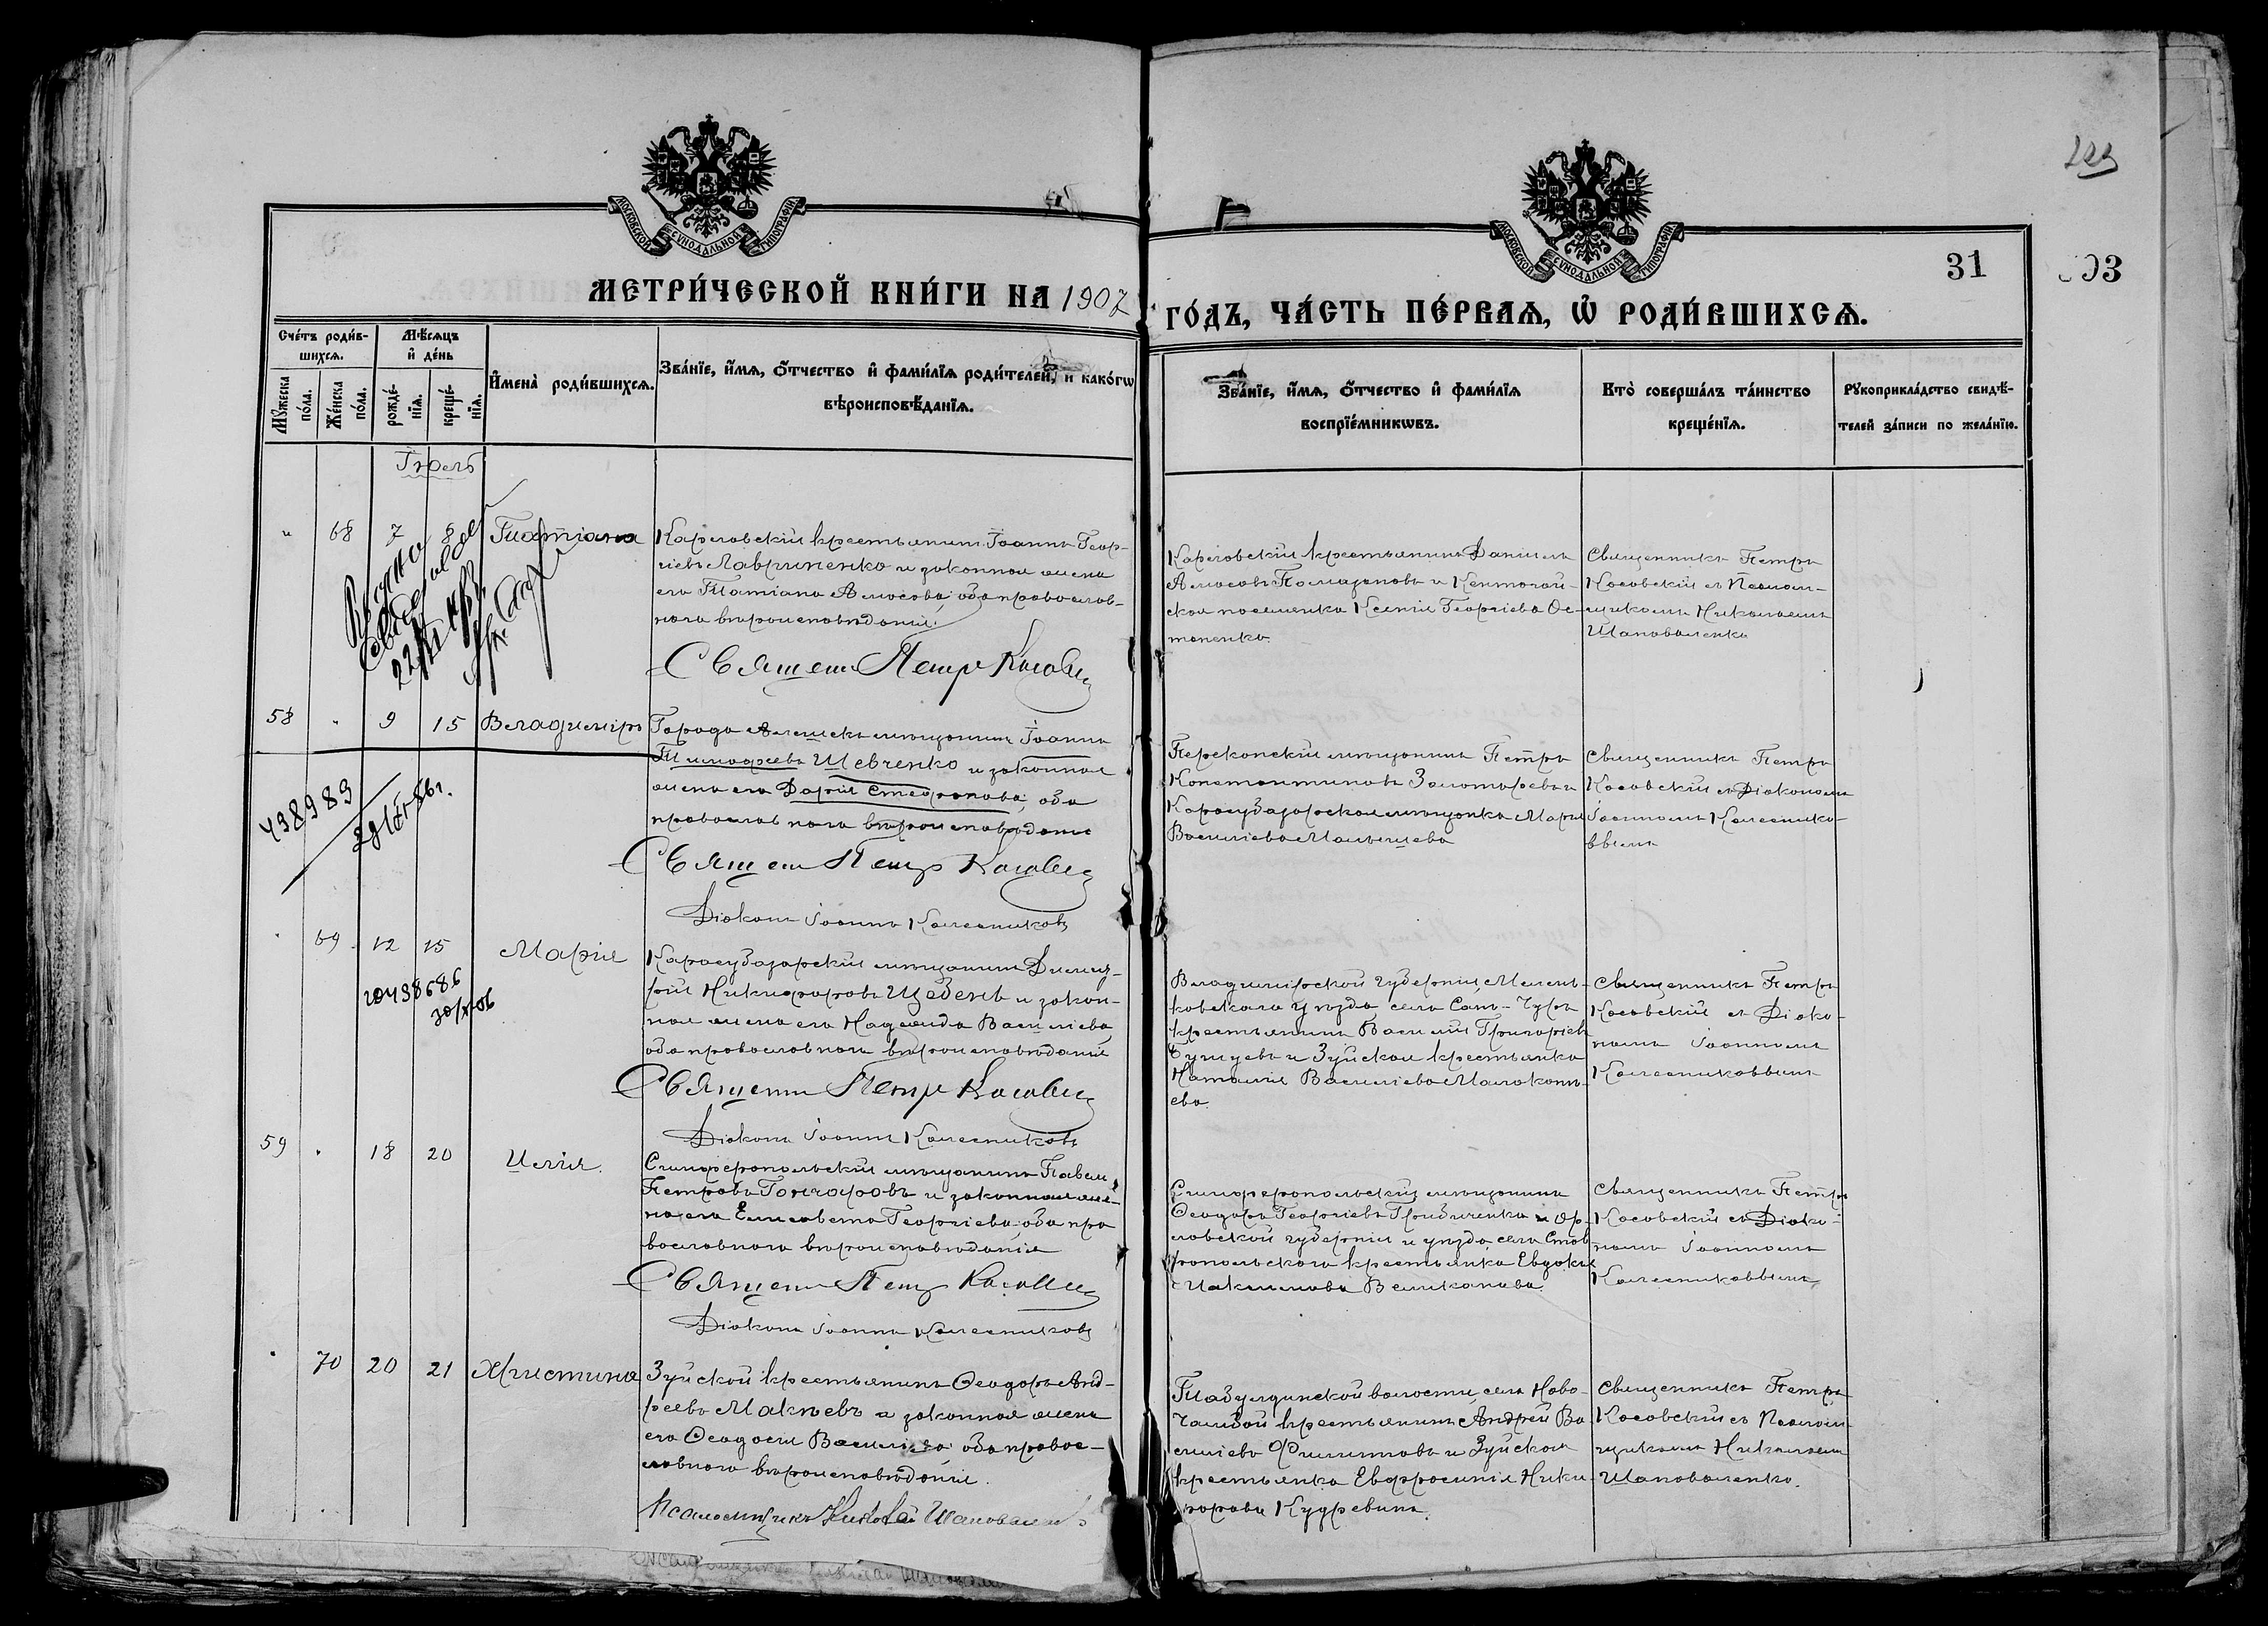 МОСКОВСКОЙ СѴНОДАЛЬНОЙ ТИПОГРАФІИ
МОСКОВСКОЙ СѴНОДАЛЬНОЙ ТИПОГРАФІИ
31
МЕТРИ́ЧЕСКОЙ КНИ́ГИ НА 1907
ГО́ДЪ, ЧА́СТЬ ПЕ́РВАѦ, Ѡ҆ РОДИ́ВШИХСѦ.
Сче́тъ роди́в-
шихсѧ.
Мꙋ́жеска по́ла.
Же́нска по́ла.
Мѣ́сѧцъ
и҆ де́нь
рожде́-
нїѧ.
креще́-
нїѧ.
И҆мена̀ роди́вшихсѧ.
Зва́нїе, и҆́мѧ, ѻ҆́тчество и҆ фами́лїѧ роди́телей, и҆ како́гѡ
вѣроисповѣ́данїѧ.
Зва́нїе, и҆́мѧ, ѻ҆́тчество и҆ фами́лїѧ
воспрїе́мникѡвъ.
Кто̀ соверша́лъ та́инство
креще́нїѧ.
Рꙋкоприкла́дство свидѣ́-
телей за́писи по жела́нїю.
Іюль
" 68 7 8 Татіана
Карловскій крестьянинъ Іоаннъ Геор-
гіевъ Лавриненко и законная жена
его Татіана Амосова, оба православ-
наго вѣроисповѣданія.
Священ Петр Косовск
Карловскій крестьянинъ Даніилъ
Амосовъ Помазановъ и Кентогай-
ская поселянка Ксенія Георгіева Ос-
тапенко.
Священникъ Петръ
Косовскій съ Псалом-
щикомъ Николаемъ
Шаповаленко
58 " 9 15 Владиміръ
Города Алешекъ мѣщанинъ Іоаннъ
Тимофеевъ Шевченко и законная
жена его Дарія Стефанова, оба
православнаго вѣроисповѣданія
Священ Петр Косовск
Діаконъ Іоаннъ Колесниковъ
Перекопскій мѣщанинъ Петръ
Константиновъ Золотаревъ и
Карасубазарская мѣщанка Марія
Васильева Малышева
Священникъ Петръ
Косовскій съ Діакономъ
Іоанномъ Колеснико-
вымъ
438983
" 69 12 15 Марія
Карасубазарскій мѣщанинъ Димит-
рій Никифоровъ Щебень и закон-
ная жена его Надежда Васильева,
оба православнаго вѣроисповѣданія
Священ Петр Косовск
Діаконъ Іоаннъ Колесниковъ
Владимірской губерніи Мелен-
ковскаго уѣзда села Санъ-Чуръ
крестьянинъ Василій Григорьевъ
и Зуйская крестьянка
Наталія Васильева Малокопъ-
ева.
Священникъ Петръ
Косовскій съ Діако-
номъ Іоанномъ
Колесниковымъ
59 " 18 20 Илія.
Симферопольскій мѣщанинъ Павелъ
Петровъ Гончаровъ и законная же-
на его Елисавета Георгіева, оба пра
вославнаго вѣроисповѣданія
Священ Петр Косовск
Діаконъ Іоаннъ Колесниковъ
Симферопольскій мѣщанинъ
Ѳеодоръ Георгіевъ Грибиченко и Ор-
ловской губерніи и уѣзда, села Став
ропольскаго крестьянка Евдокія
Іакимова Великанова.
Священникъ Петръ
Косовскій съ Діако-
номъ Іоанномъ
Колесниковымъ
" 70 20 21 Христина
Зуйской крестьянинъ Ѳеодоръ Анд-
реевъ Макѣевъ и законная жена
его Ѳеодосія Васильева, оба правос-
лавнаго вѣроисповѣданія.
Псаломщикъ Николай Шаповаленко
Табулдинской волости, села Ново-
Чамбай крестьянинъ Андрей Ва
сильевъ Филипповъ и Зуйская
крестьянка Евфросинія Ники
форова Кудревина.
Священникъ Петръ
Косовскій съ Псалом
щикомъ Николаемъ
Шаповаленко.